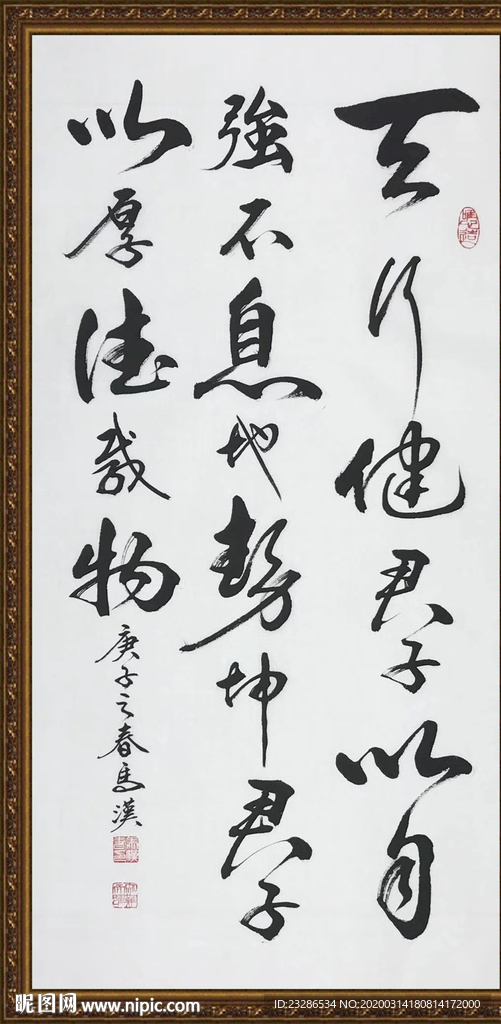 天行健君子以自
強不息地勢坤君子
以厚德載物
庚子之春馬漢
昵图网 www.nipic.com
ID:23286534 NO:20200314180814172000